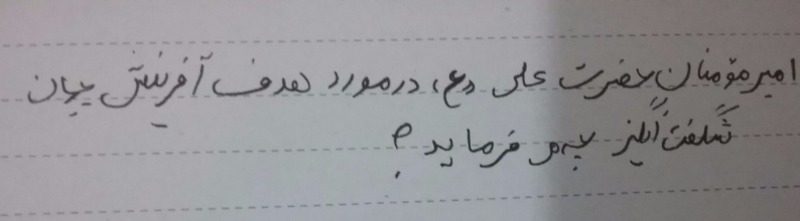 امیرمؤمنان حضرت علی (ع) درمورد هدف آفرینش جهان
شگفت انگیز چه می فرماید ؟